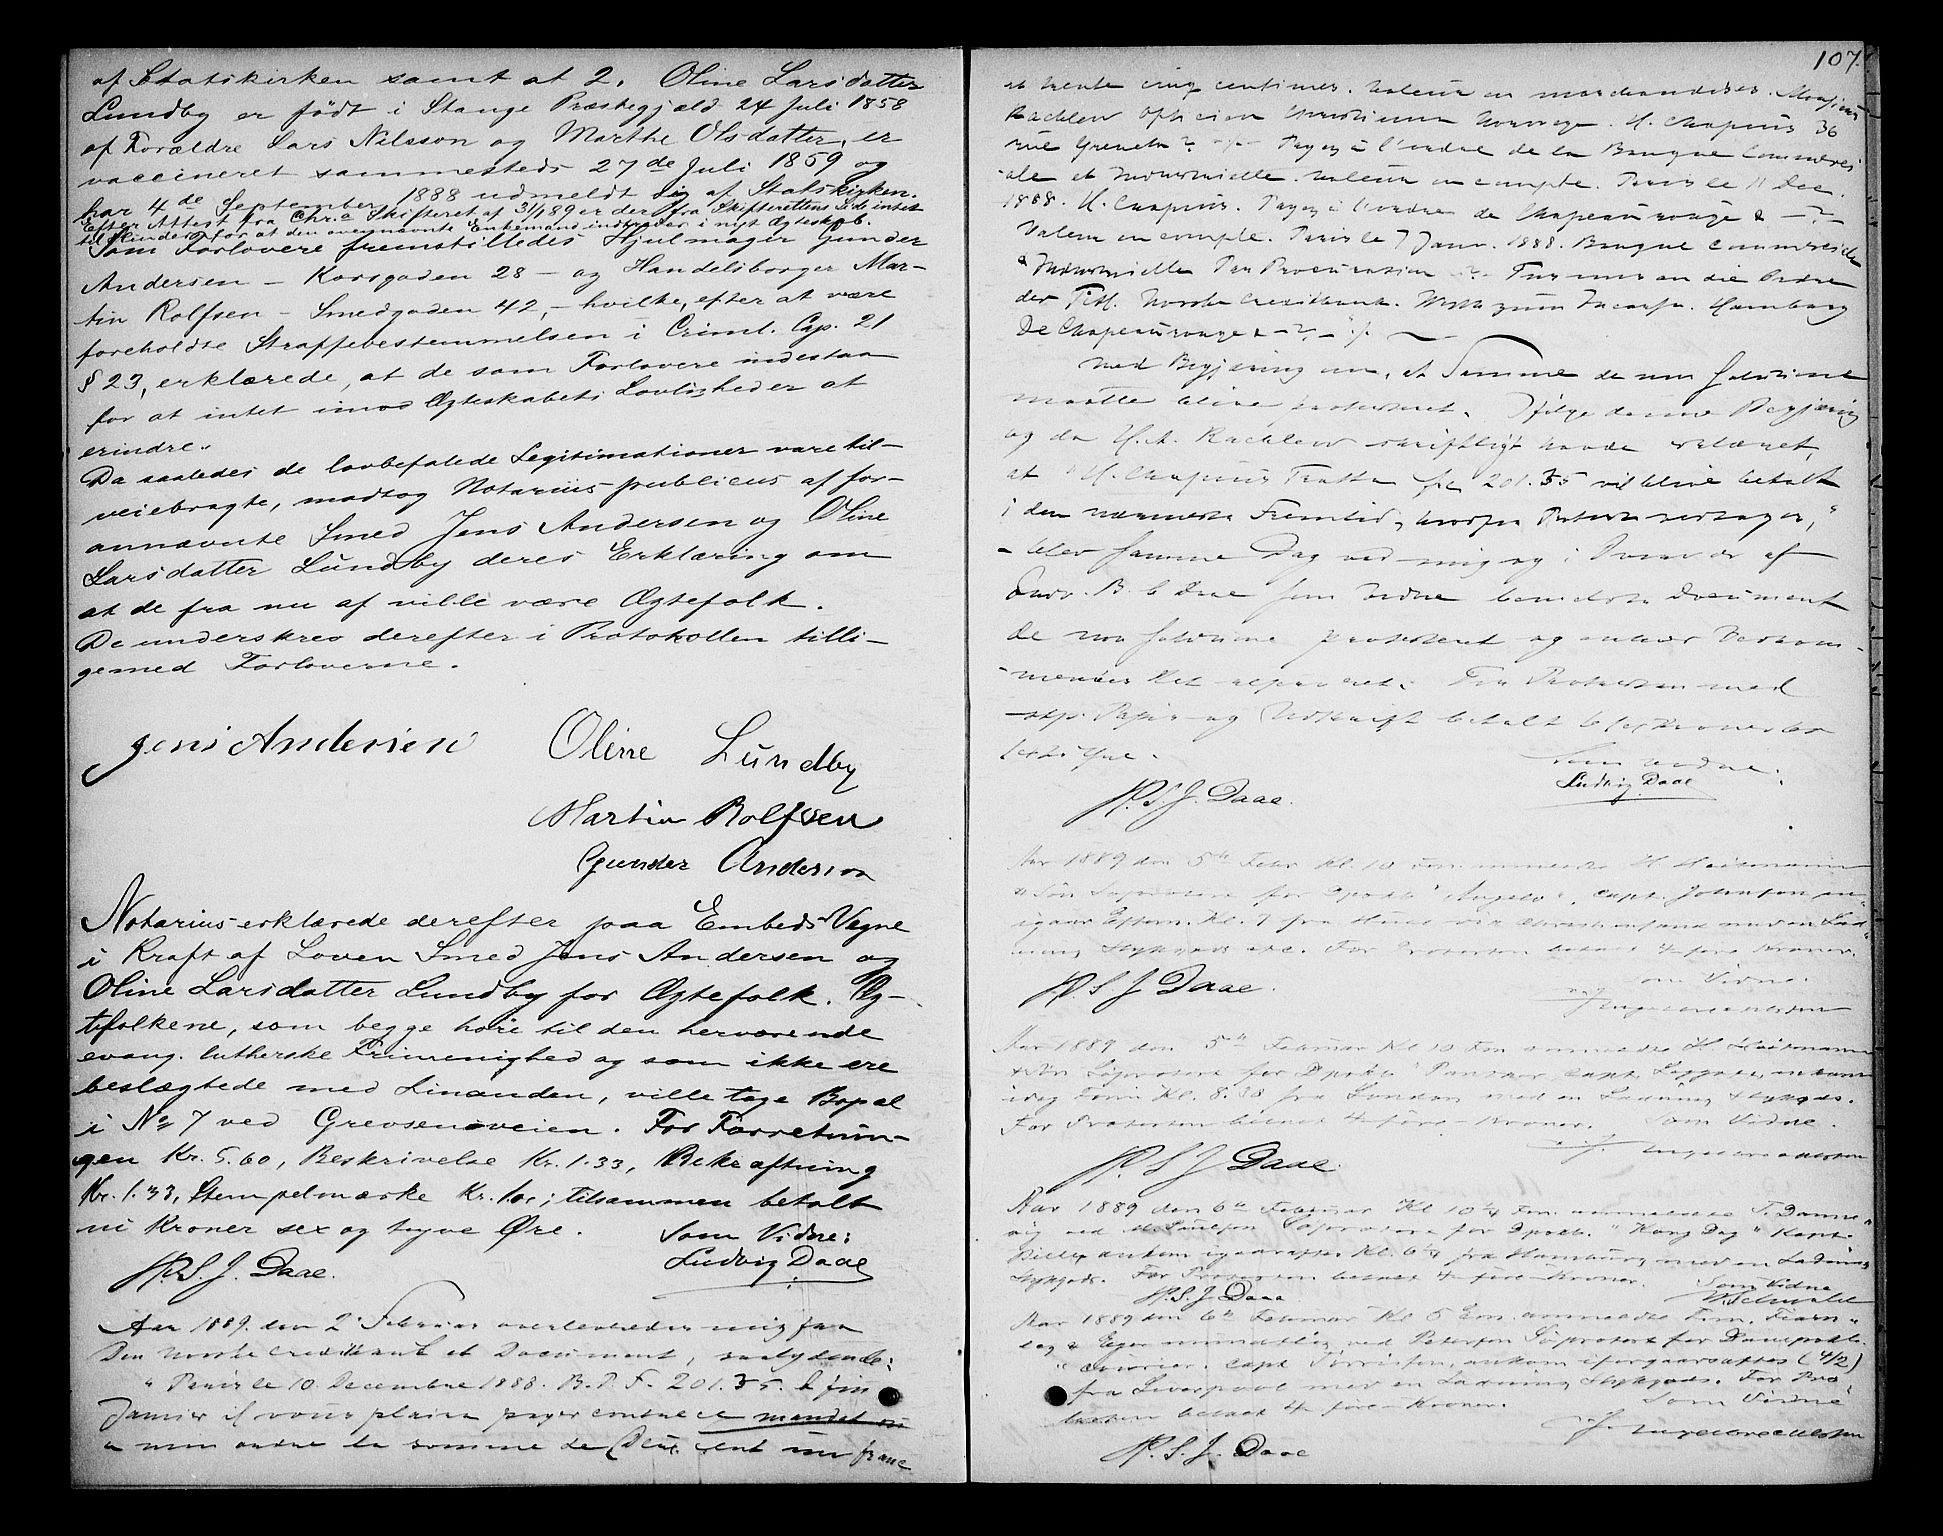 af Statskirken samt at 2. Oline Larsdatter
Lundby er født i Stange Præstegjæld 24 Juli 1858
af Forældre Lars Nilsson og Marthe Olsdatter, er
vaccineret sammesteds 27de Juli 1859 og
har 4de September 1888 udmeldt sig af Statskirken.
Efter Attest fra Chr.a Skifteret af 31/1 89 er der fra Skifterettens Side intet
til Hinder for at den ovennævnte Enkemand indtræder i nyt Ægteskab.
Som Forlovere fremstilledes Hjulmager Gunder
Andersen – Korsgaden 28 – og Handelsborger Mar-
tin Rolfsen – Smedgaden 42, – hvilke, efter at være
foreholdte Straffebestemmelsen i Criml. Cap. 21
§ 23, erklærede, at de som Forlovere indestaa
for at intet imod Ægteskabets Lovlighed er at
erindre.
Da saaledes de lovbefalede Legitimationer vare til-
veiebragte, modtog Notarius publicus af for-
annævnte Smed Jens Andersen og Oline
Larsdatter Lundby deres Erklæring om
at de fra nu af ville være Ægtefolk.
De underskrev derefter i Protokollen tilli-
gemed Forloverne.
Jens Andersen Oline Lundby
Martin Rolfsen
Gunder Andersen
Notarius erklærede derefter paa Embeds Vegne
i Kraft af Loven Smed Jens Andersen og
Oline Larsdatter Lundby for Ægtefolk. Æg-
tefolkene, som begge høre til den herværende
evang. lutherske Frimenighed og som ikke ere
beslægtede med hinanden, ville tage Bopæl
i No 7 ved Grevsensveien. For Forretnin-
gen Kr. 5.60, Beskrivelse Kr. 1.33, Bekræftning
Kr. 1.33, Stempelmærke Kr. 1.00; tilsammen betalt
ni Kroner sex og tyve Øre. Som Vidne:
H.S.J. Daae. Ludvig Daae
Aar 1889 den 2 Februar overleveredes mig fra
Den norske Creditbank et Document, saalydende:
"Paris le 10 Decembre 1888. B.P.F. 201.35. à fin
Janvier il vous plaira payer contre ce mandat
a mon ordre la somme de Deux cent un franc
107.
et trente cinq centimes. Valeur en marchandises. Monsieur
Rachlew Opticien Christiania Norvege. H. Chapuis 36
rue Greneta ? Payez à l'ordre de la Banque Commerci
ale et Industrielle. Valeur en compte. Paris le 11 Dec.
1888. H. Chapuis. Payez à l'ordre de Chapeaurouge & – ? –
Valeur en compte. Paris le 7 Janv. 1888. Banque commerciale
& Industrielle Par Procuration ? Für uns an die Ordre
der Titl. Norske Creditbank. Werth zum Incasso. Hamburg
De Chapeaurouge & – ? –
med Begjæring om, at Samme de non solutione
maatte blive protesteret. Ifølge denne Begjæring
og da H.A. Rachlew skriftligt havde erklæret,
at "H. Chapuis Tratte frc 201.35 vil blive betalt
i den nærmeste Fremtid, hvorfor Protest modtages,"
– blev samme Dag ved mig og i Overvær af
B. C. Daae som Vidne bemeldte Document
de non solutione protesteret og enhver Vedkom-
mendes Ret reserveret. For Protesten med
stp. Papir og Udskrift betalt 6 sex Kroner
Øre. Som Vidne:
H.S.J. Daae. Ludvig Daae
Aar 1889 den 5te Febr Kl. 10 Form anmeldte H Heitmann
& Søn Søprotest for Dpskb "Angelo", Capt. Johnson, an-
igaar Efterm. Kl. 7 fra Hull via Christiansand med en Lad-
ning Stykgods etc. For Protesten betalt 4 – fire Kroner.
H.S.J. Daae. Som Vidne:
Ingebrechtsen
Aar 1889 den 5te Februar Kl 10 Fm anmeldte H Heitmann
& Søn Søprotest for Dpskb "                    ankom
idag Form Kl. 8.30 fra London med en Ladning Stykgods.
For Protesten betalt 4 – fire – Kroner. Som Vidne.
H.S.J. Daae. Ingebrechtsen
Aar 1889 den 6te Februar Kl 10 1/4 Fm. anmeldte T. Danne-
vig ved M. Poulsson Søprotest for Dpskb. "Kong Dag" Kapt.
ankom igaaraftes Kl. 6 1/4 fra Hamburg med en Ladning
Stykgods. For Protesten betalt 4 – fire – Kroner. Som Vidne
H.S.J. Daae
Aar 1889 den 6te Februar Kl 5 Em. anmeldte Firm. Fearn-
ley & Eger mundtlig ved Petersen Søprotest for Dampskb.
"Courier" capt ankom iforgaaraftes (4/2)
fra Liverpool med en Ladning Stykgods. For Pro-
testen betalt 4 – fire – Kroner. Som Vidne
H.S.J. Daae Ingebrechtsen